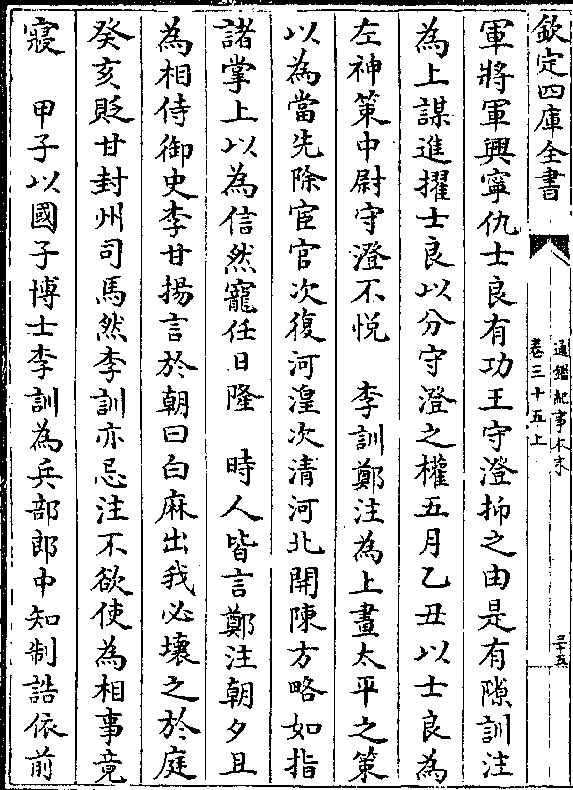 欽定四庫全書
通鑑紀事本末
卷三十五上
三十五
軍將軍興寧仇士良有功王守澄抑之由是有隙訓注
為上謀進擢士良以分守澄之權五月乙丑以士良為
左神策中尉守澄不悅　李訓鄭注為上畫太平之策
以為當先除宦官次復河湟次清河北開陳方略如指
諸掌上以為信然寵任日隆　時人皆言鄭注朝夕且
為相侍御史李甘揚言於朝曰白麻出我必壞之於庭
癸亥貶甘封州司馬然李訓亦忌注不欲使為相事竟
寢　甲子以國子博士李訓為兵部郎中知制誥依前